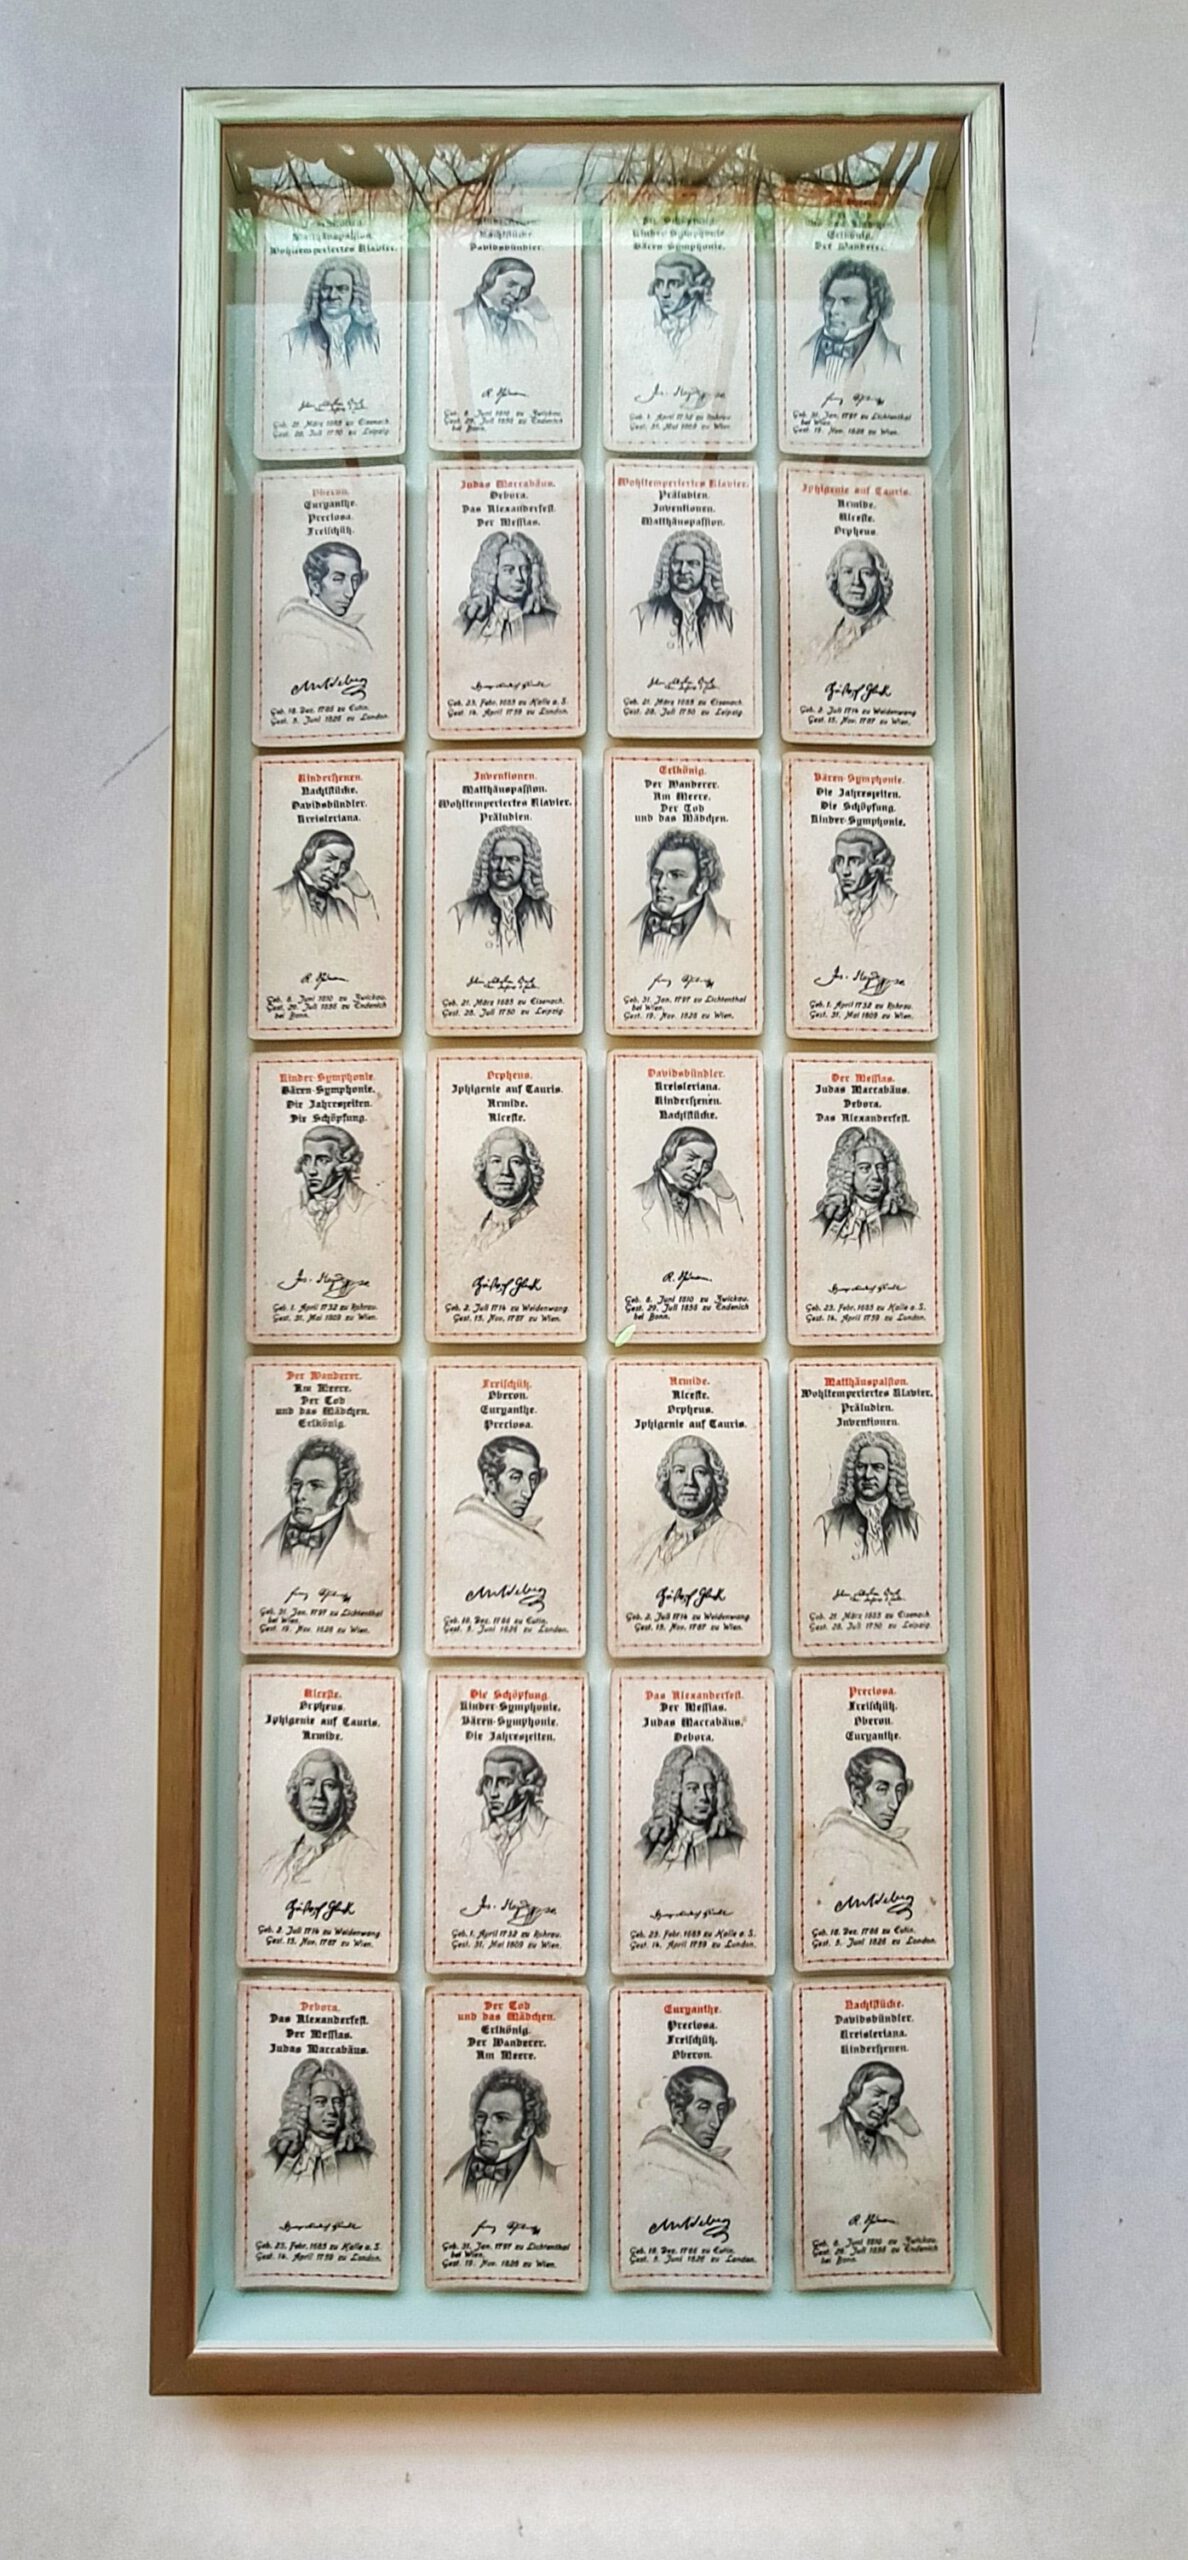 Matthäuspassion.
Wohltemperiertes Klavier.
Geb. 21. März 1685 zu Eisenach.
Gest. 28. Juli 1750 zu Leipzig.
Nachtstücke.
Davidsbündler.
Geb. 8. Juni 1810 zu Zwickau.
Gest. 29. Juli 1856 zu Endenich
bei Bonn.
Die Schöpfung.
Kinder-Symphonie.
Bären-Symphonie.
Geb. 1. April 1732 zu Rohrau.
Gest. 31. Mai 1809 zu Wien.
Erlkönig.
Der Wanderer.
Geb. 31. Jan. 1797 zu Lichtenthal
bei Wien.
Gest. 19. Nov. 1828 zu Wien.
Oberon.
Euryanthe.
Preciosa.
Freischütz.
Geb. 18. Dez. 1786 zu Eutin.
Gest. 5. Juni 1826 zu London.
Judas Maccabäus.
Debora.
Das Alexanderfest.
Der Messias.
Geb. 23. Febr. 1685 zu Halle a. S.
Gest. 14. April 1759 zu London.
Wohltemperiertes Klavier.
Präludien.
Inventionen.
Matthäuspassion.
Geb. 21. März 1685 zu Eisenach.
Gest. 28. Juli 1750 zu Leipzig.
Iphigenie auf Tauris.
Armide.
Alceste.
Orpheus.
Geb. 2. Juli 1714 zu Weidenwang.
Gest. 15. Nov. 1787 zu Wien.
Kinderszenen.
Nachtstücke.
Davidsbündler.
Kreisleriana.
Geb. 8. Juni 1810 zu Zwickau.
Gest. 29. Juli 1856 zu Endenich
bei Bonn.
Inventionen.
Matthäuspassion.
Wohltemperiertes Klavier.
Präludien.
Geb. 21. März 1685 zu Eisenach.
Gest. 28. Juli 1750 zu Leipzig.
Erlkönig.
Der Wanderer.
Am Meere.
Der Tod
und das Mädchen.
Geb. 31. Jan. 1797 zu Lichtenthal
bei Wien.
Gest. 19. Nov. 1828 zu Wien.
Bären-Symphonie.
Die Jahreszeiten.
Die Schöpfung.
Kinder-Symphonie.
Geb. 1. April 1732 zu Rohrau.
Gest. 31. Mai 1809 zu Wien.
Kinder-Symphonie.
Bären-Symphonie.
Die Jahreszeiten.
Die Schöpfung.
Geb. 1. April 1732 zu Rohrau.
Gest. 31. Mai 1809 zu Wien.
Orpheus.
Iphigenie auf Tauris.
Armide.
Alceste.
Geb. 2. Juli 1714 zu Weidenwang.
Gest. 15. Nov. 1787 zu Wien.
Davidsbündler.
Kreisleriana.
Kinderszenen.
Nachtstücke.
Geb. 8. Juni 1810 zu Zwickau.
Gest. 29. Juli 1856 zu Endenich
bei Bonn.
Der Messias.
Judas Maccabäus.
Debora.
Das Alexanderfest.
Geb. 23. Febr. 1685 zu Halle a. S.
Gest. 14. April 1759 zu London.
Der Wanderer.
Am Meere.
Der Tod
und das Mädchen.
Erlkönig.
Geb. 31. Jan. 1797 zu Lichtenthal
bei Wien.
Gest. 19. Nov. 1828 zu Wien.
Freischütz.
Oberon.
Euryanthe.
Preciosa.
Geb. 18. Dez. 1786 zu Eutin.
Gest. 5. Juni 1826 zu London.
Armide.
Alceste.
Orpheus.
Iphigenie auf Tauris.
Geb. 2. Juli 1714 zu Weidenwang.
Gest. 15. Nov. 1787 zu Wien.
Matthäuspassion.
Wohltemperiertes Klavier.
Präludien.
Inventionen.
Geb. 21. März 1685 zu Eisenach.
Gest. 28. Juli 1750 zu Leipzig.
Alceste.
Orpheus.
Iphigenie auf Tauris.
Armide.
Geb. 2. Juli 1714 zu Weidenwang.
Gest. 15. Nov. 1787 zu Wien.
Die Schöpfung.
Kinder-Symphonie.
Bären-Symphonie.
Die Jahreszeiten.
Geb. 1. April 1732 zu Rohrau.
Gest. 31. Mai 1809 zu Wien.
Das Alexanderfest.
Der Messias.
Judas Maccabäus.
Debora.
Geb. 23. Febr. 1685 zu Halle a. S.
Gest. 14. April 1759 zu London.
Preciosa.
Freischütz.
Oberon.
Euryanthe.
Geb. 18. Dez. 1786 zu Eutin.
Gest. 5. Juni 1826 zu London.
Debora.
Das Alexanderfest.
Der Messias.
Judas Maccabäus.
Geb. 23. Febr. 1685 zu Halle a. S.
Gest. 14. April 1759 zu London.
Der Tod
und das Mädchen.
Erlkönig.
Der Wanderer.
Am Meere.
Geb. 31. Jan. 1797 zu Lichtenthal
bei Wien.
Gest. 19. Nov. 1828 zu Wien.
Euryanthe.
Preciosa.
Freischütz.
Oberon.
Geb. 18. Dez. 1786 zu Eutin.
Gest. 5. Juni 1826 zu London.
Nachtstücke.
Davidsbündler.
Kreisleriana.
Kinderszenen.
Geb. 8. Juni 1810 zu Zwickau.
Gest. 29. Juli 1856 zu Endenich
bei Bonn.